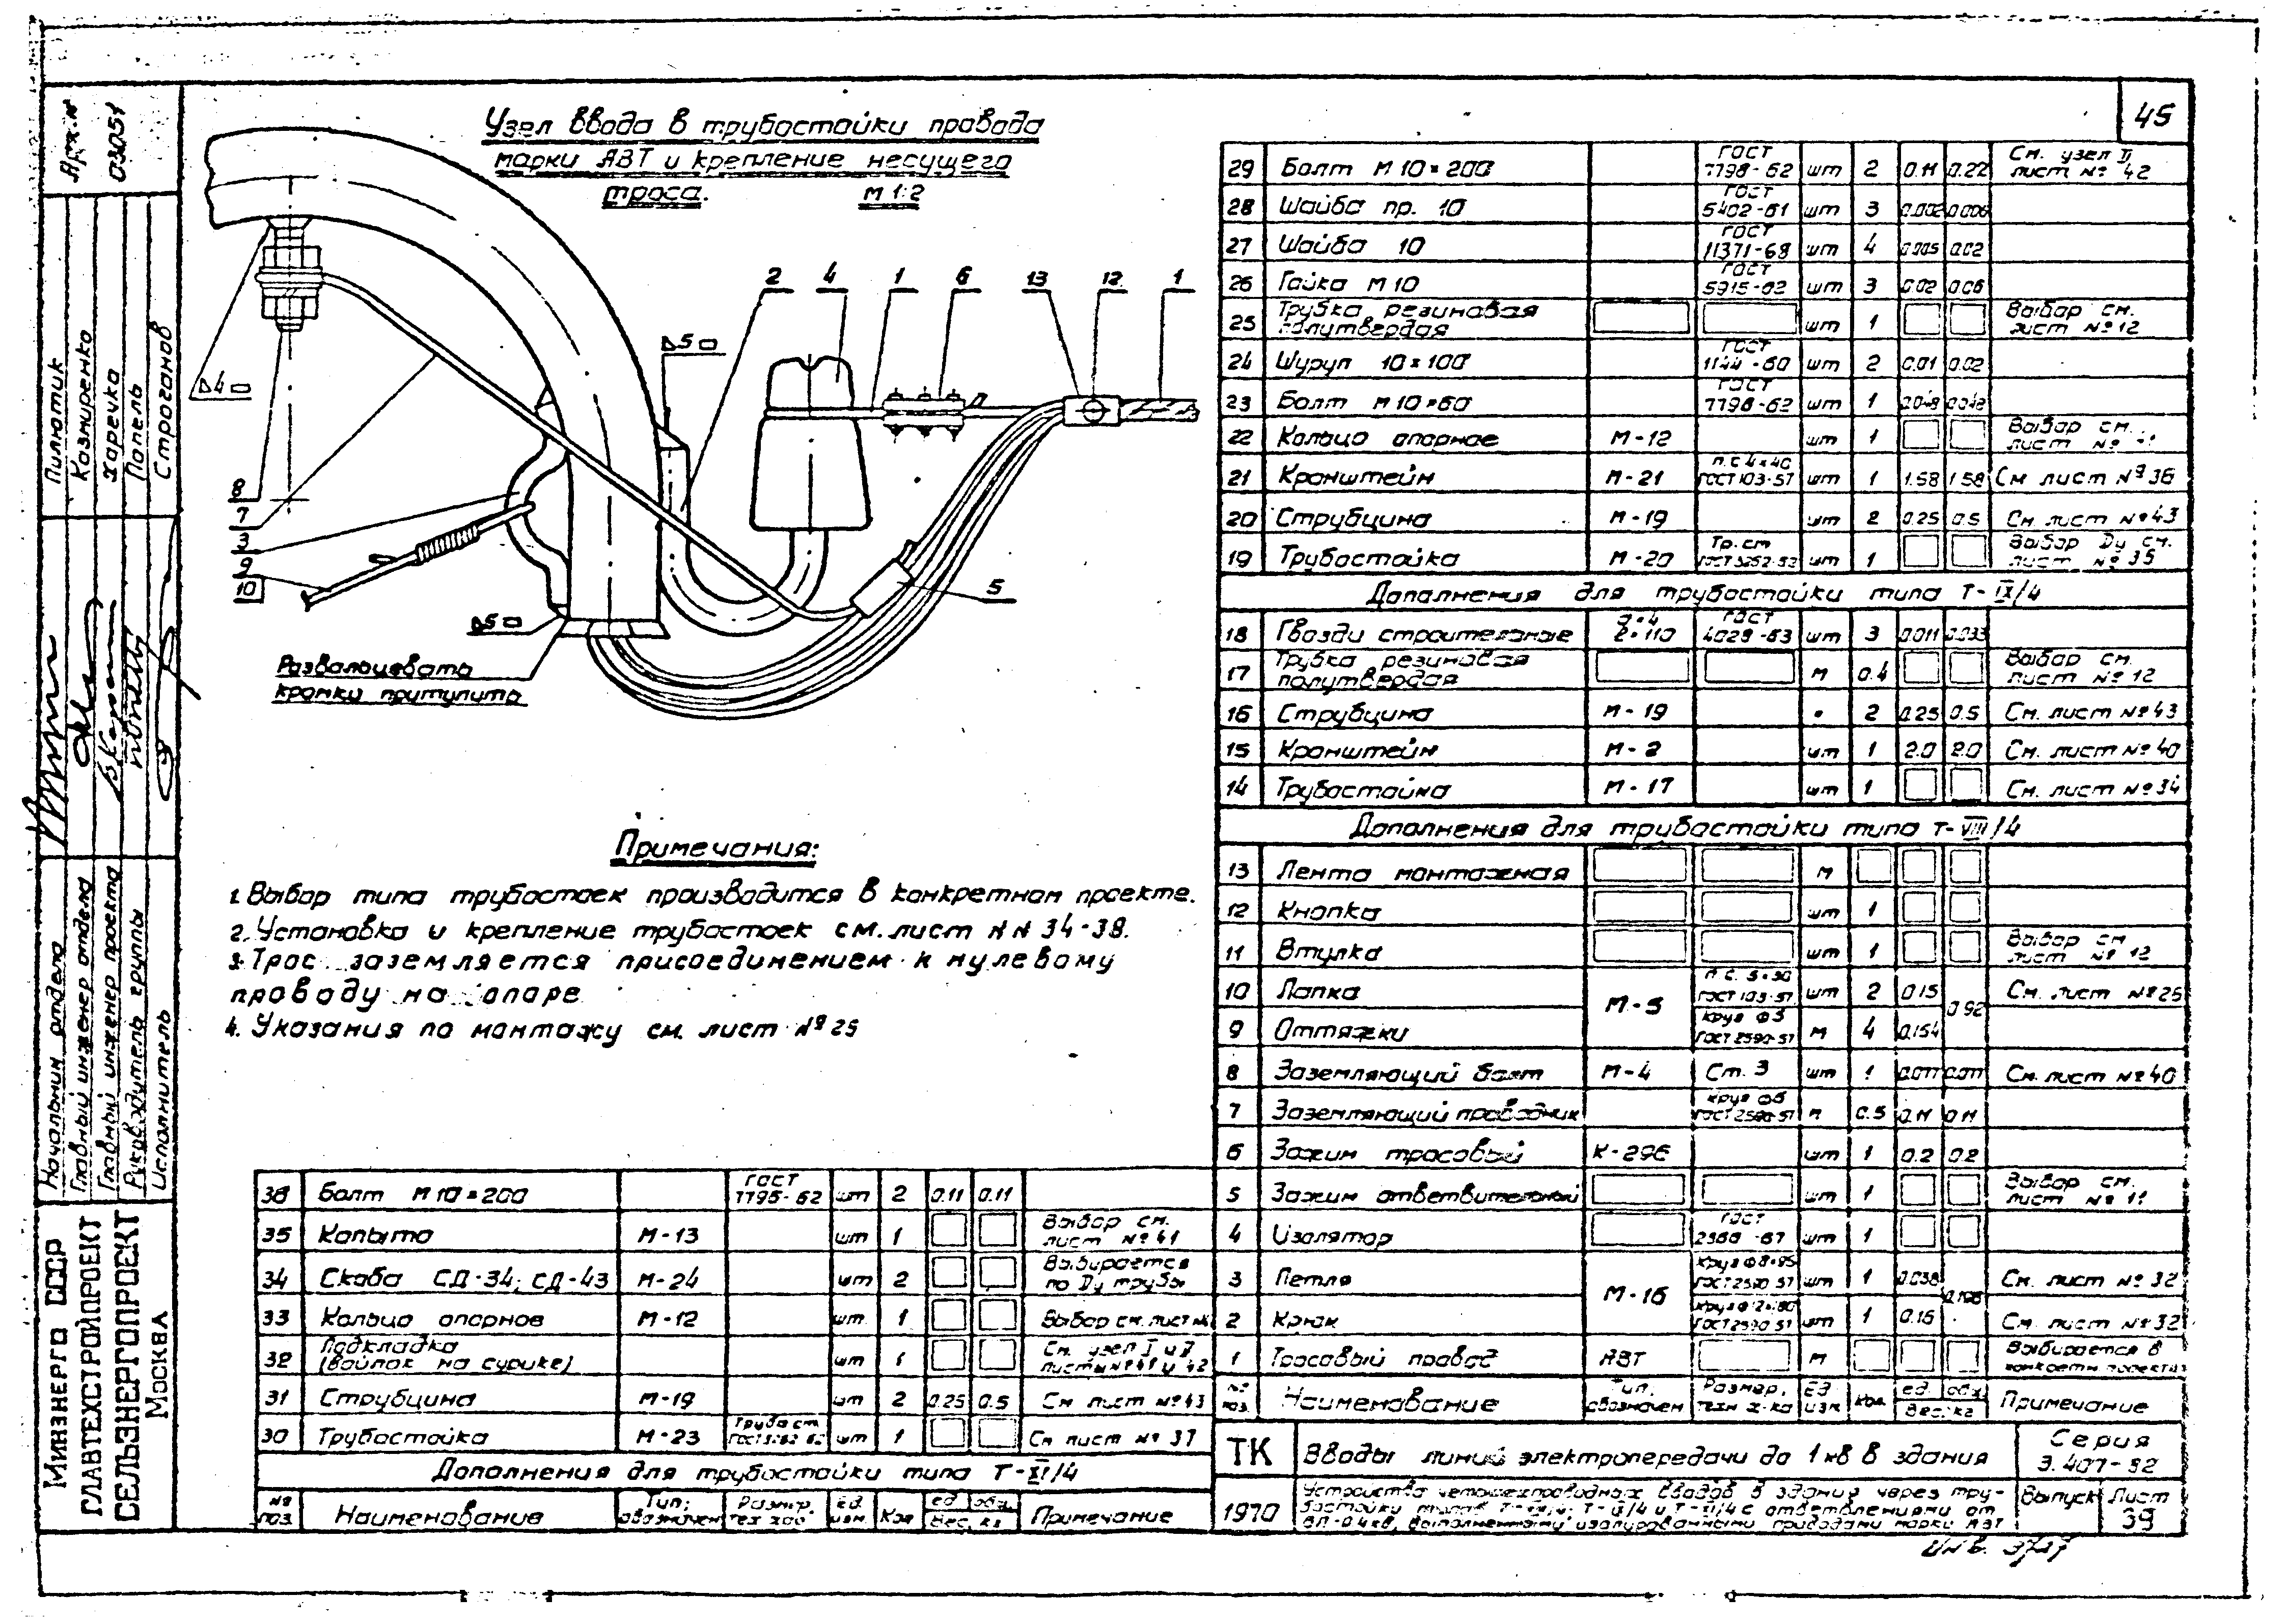 45
Арх. №
03051
Узел ввода в трубостойки провода
марки АВТ и крепление несущего
троса. М 1:2
2 4 1 6 13 12 1
5
4
5
8
7
3
9
10
5
Развальцевать
кромки притупить
Примечания:
1. Выбор типа трубостоек производится в конкретном проекте.
2. Установка и крепление трубостоек см. лист NN 34-38.
3. Трос заземляется присоединением к нулевому
проводу на опоре
4. Указания по монтажу см. лист №25
29 Болт М10×200 ГОСТ 7798-62 шт 2 0.11 0.22 См. узел II лист № 42
28 Шайба пр. 10 ГОСТ 6402-61 шт 3 0.002 0.006
27 Шайба 10 ГОСТ 11371-68 шт 4 0.005 0.02
26 Гайка М10 ГОСТ 5915-62 шт 3 0.02 0.06
25 Трубка резиновая полутвердая шт 1 Выбор см. лист №12
24 Шуруп 10×100 ГОСТ 1144-60 шт 2 0.01 0.02
23 Болт М10×60 ГОСТ 7798-62 шт 1 0.048 0.048
22 Кольцо опорное М-12 шт 1 Выбор см. лист №
21 Кронштейн М-21 п.с 4×40 ГОСТ 103-57 шт 1 1.58 1.58 См лист №36
20 Струбцина М-19 шт 2 0.25 0.5 См. лист №43
19 Трубостойка М-20 Тр. ст ГОСТ 3262-62 шт 1 Выбор Ду см. лист №35
Дополнения для трубостойки типа Т-IX/4
18 Гвозди строительные d=4 l=110 ГОСТ 4028-63 шт 3 0.011 0.033
17 Трубка резиновая полутвердая м 0.4 Выбор см. лист №12
16 Струбцина М-19 " 2 0.25 0.5 См. лист №43
15 Кронштейн М-2 шт 1 2.0 2.0 См. лист №40
14 Трубостойка М-17 шт 1 См. лист №34
Дополнения для трубостойки типа Т-VIII/4
13 Лента монтажная м
12 Кнопка шт 1
11 Втулка шт 1 Выбор см лист №12
10 Лапка М-5 п.с. 5×30 ГОСТ 103-57 шт 2 0.15 0.92 См. лист №26
9 Оттяжки круг Ф5 ГОСТ 2590-57 м 4 0.154
8 Заземляющий болт М-4 Ст. 3 шт 1 0.077 0.077 См. лист №40
7 Заземляющий проводник круг Ф6 ГОСТ 2590-57 м 0.5 0.11 0.11
6 Зажим тросовый К-296 шт 1 0.2 0.2
5 Зажим ответвительный шт 1 Выбор см. лист №11
4 Изолятор ГОСТ 2366-67 шт 1
3 Петля М-16 круг Ф8×95 ГОСТ 2590-57 шт 1 0.038 См. лист №32
2 Крюк круг Ф12×180 ГОСТ 2590-57 шт 1 0.16 См. лист №32
1 Тросовый провод АВТ м Выбирается в конкретн проектах
№ поз. Наименование Тип, обозначен Размер, техн х-ка Ед изм Кол. ед. общ. Вес, кг Примечание
36 Болт М10×200 ГОСТ 7798-62 шт 2 0.11 0.11
35 Копыто М-13 шт 1 Выбор см. лист №41
34 Скоба СД-34; СД-43 М-24 шт 2 Выбирается по Ду трубы
33 Кольцо опорное М-12 шт 1 Выбор см. лист
32 Подкладка (войлок на сурике) шт 1 См. узел I и II листы №41 и 42
31 Струбцина М-19 шт 2 0.25 0.5 См лист №43
30 Трубостойка М-23 Труба ст. ГОСТ 3262-62 шт 1 См лист № 37
Дополнения для трубостойки типа Т-XI/4
№ поз. Наименование Тип, обозначен Размер, тех хар. Ед. изм. Кол ед. общ. Вес, кг Примечание
ТК Вводы линий электропередачи до 1 кв в здания Серия 3.407-82
1970 Устройство четырехпроводных вводов в здания через тру-
бостойки типов Т-VIII/4; Т-IX/4 и Т-XI/4 с ответвлениями от
ВЛ-0,4кв, выполненными изолированными проводами марки АВТ
Выпуск Лист 39
Инв. 3727
Начальник отдела Пилютик
Главный инженер отдела Казмиренко
Главный инженер проекта Харечко
Руководитель группы Папель
Исполнитель Строганов
Минэнерго СССР
ГЛАВТЕХСТРОЙПРОЕКТ
СЕЛЬЭНЕРГОПРОЕКТ
Москва